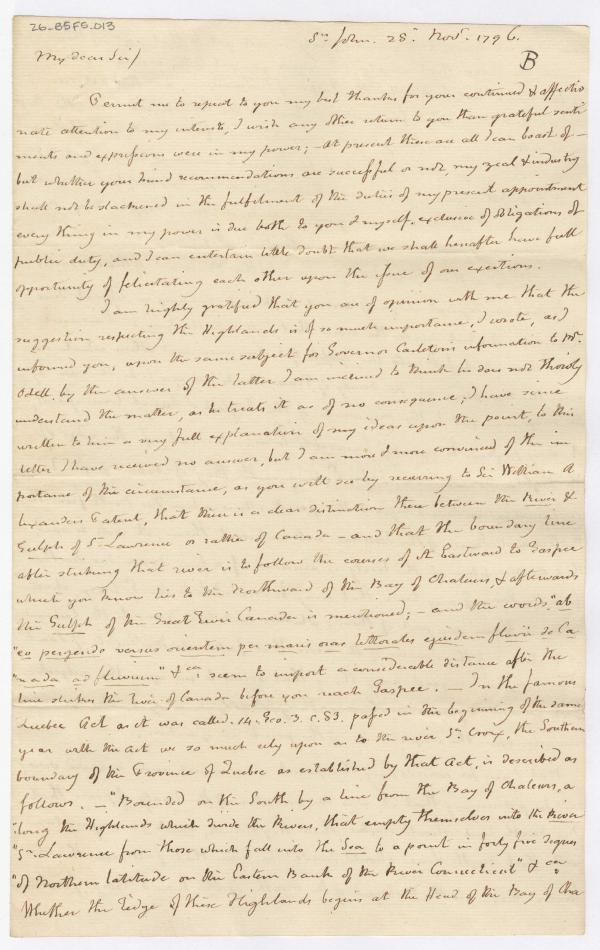 26-85FG.013
St. John. 28th. Novr. 1796.
B
My dear Sir/
Permit me to repeat to you my best thanks for your continued & affectio
nate attention to my interests, I wish any other return to you than grateful senti
ments and expressions were in my power; – at present these are all I can boast of –
but whether your kind recommendations are successful or not, my zeal & industry
shall not be slackened in the fulfilment of the duties of my present appointment
every thing in my power is due both to you & myself exclusive of obligations of
public duty, and I can entertain little doubt that we shall hereafter have full
opportunity of felicitating each other upon the issue of our exertions.
I am highly gratified that you are of opinion with me that the
suggestion respecting the Highlands is of so much importance, I wrote, as I
informed you, upon the same subject for Governor Carleton's information to Mr.
Odell. by the answer of the latter I am inclined to think he does not thoroly
understand the matter, as he treats it as of no consequence; I have since
written to him a very full explanation of my ideas upon the point, to this
letter I have received no answer, but I am more & more convinced of the im
portance of the circumstance, as you will see by recurring to Sir William A
lexanders Patent, that there is a clear distinction there between the River &
Gulph of St. Lawrence or rather of Canada – and that the boundary line
after striking that river is to follow the courses of it Eastward to Gaspee
which you know lies to the Northward of the Bay of Chaleurs, & afterwards
the Gulph of the Great River Canada is mentioned; – and the words "ab
"eo pergendo versus orientem per maris oras littorales ejusdem fluvii de Ca
"nada ad fluvium" & ca. seem to import a considerable distance after the
line strikes the river of Canada before you reach Gaspee. – In the famous
Quebec Act as it was called. 14. Geo. 3. c. 83. passed in the beginning of the same
year with the act we so much rely upon as to the river St. Croix, the Southern
boundary of the Province of Quebec as established by that Act, is described as
follows. – "Bounded on the South by a line from the Bay of Chaleurs, a
"long the Highlands which divide the Rivers, that empty themselves into the River
"St. Lawrence from those which fall into the Sea to a point in forty five degrees
"of Northern latitude on the Eastern Bank of the River Connecticut" & ca.
Whether the Ledge of these Highlands begins at the Head of the Bay of Cha